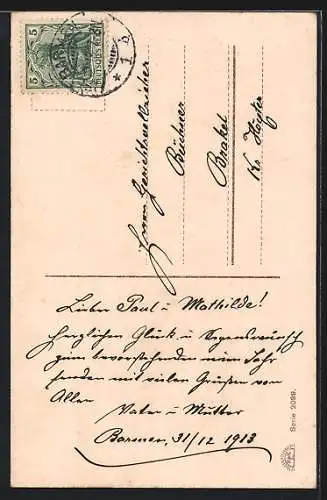 5 5
DEUTSCHES REICH
BARMEN
* 1 b
Herrn Gerichtsvollzieher
Büchner
Brakel
Kr. Höxter
Lieber Paul u Mathilde!
Herzlichen Glück u Segenswunsch
zum bevorstehenden neuen Jahr
senden mit vielen Grüßen von
Allen
Vater u Mutter
Barmen, 31/12 1913
Serie 2099.